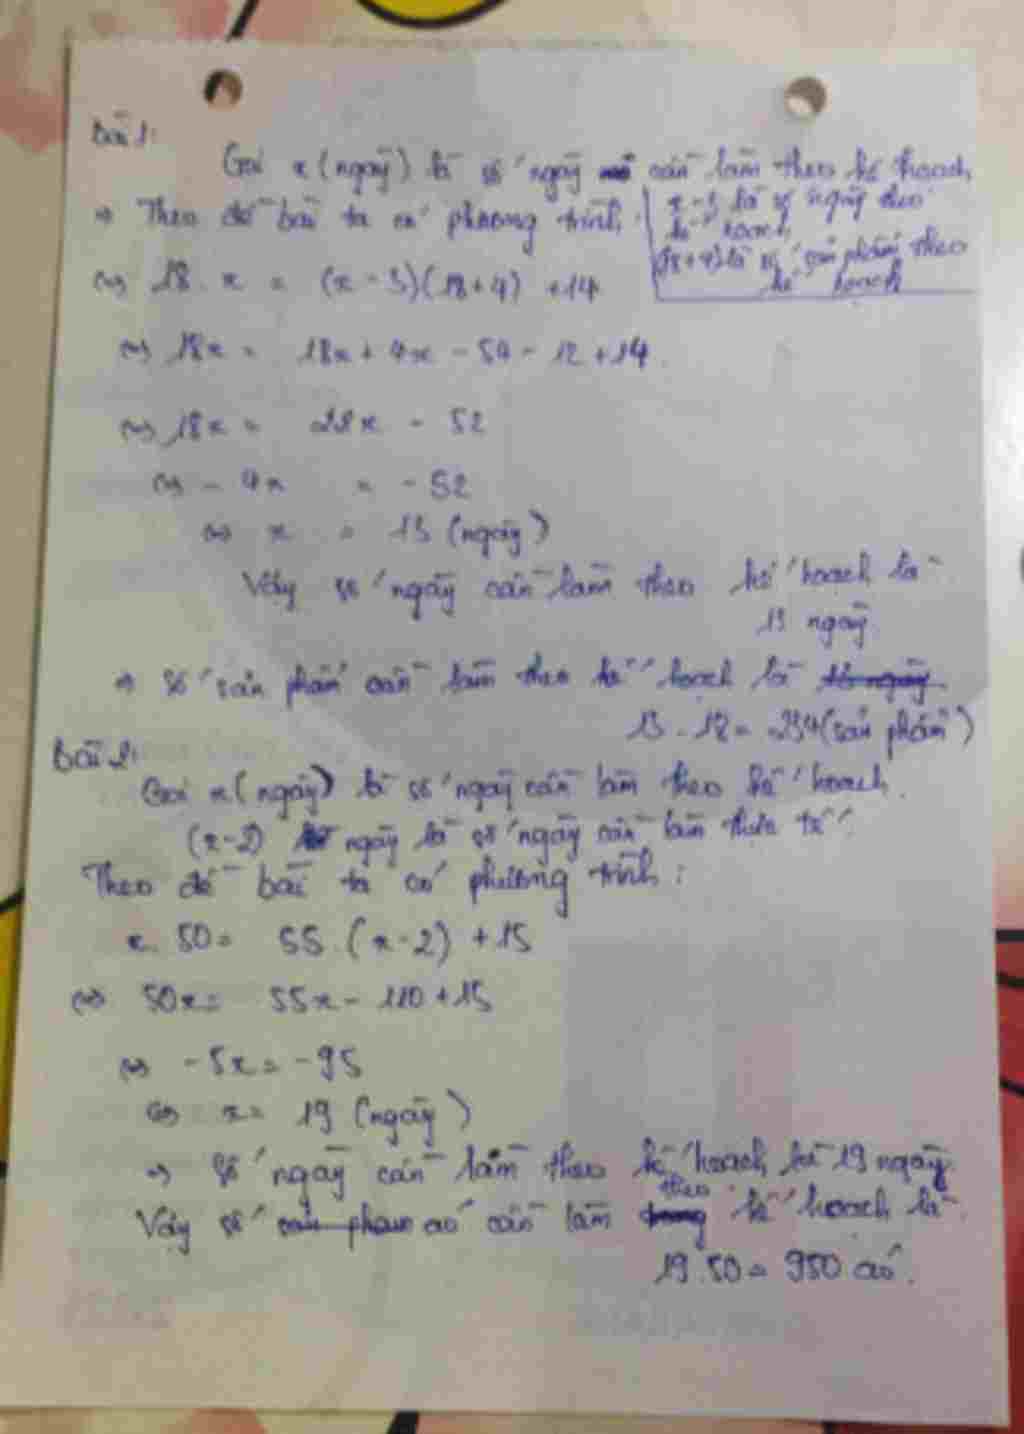 Bài 1:
Gọi x (ngày) là số ngày cần làm theo kế hoạch
⇒ Theo đề bài ta có phương trình
x - 3 là số ngày theo
kế hoạch
(18 + 4) là số sản phẩm theo
kế hoạch
⇔ 18 . x = (x - 3)(18 + 4) + 14
⇔ 18x = 18x + 4x - 54 - 12 + 14
⇔ 18x = 22x - 52
⇔ - 4x = - 52
⇔ x = 13 (ngày)
Vậy số ngày cần làm theo kế hoạch là
13 ngày
⇒ Số sản phẩm cần làm theo kế hoạch là
13 . 18 = 234 (sản phẩm)
Bài 2:
Gọi x (ngày) là số ngày cần làm theo kế hoạch
(x - 2) ngày là số ngày cần làm thực tế
Theo đề bài ta có phương trình:
x. 50 = 55 . (x - 2) + 15
⇔ 50x = 55x - 110 + 15
⇔ - 5x = - 95
⇔ x = 19 (ngày)
⇒ Số ngày cần làm theo kế hoạch là 19 ngày
Vậy số áo cần làm theo kế hoạch là
19.50 = 950 áo.